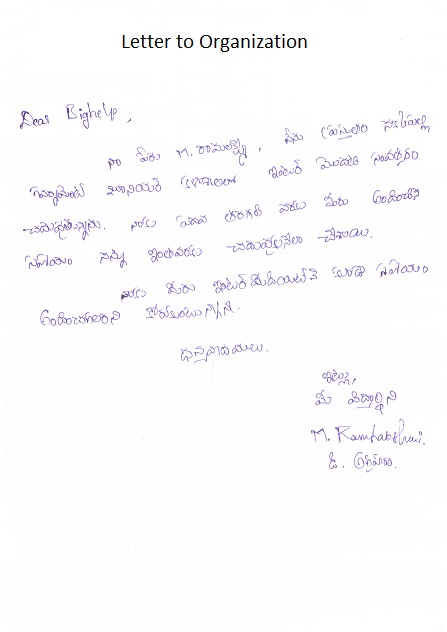 Letter to Organization
Dear Bighelp,
నా పేరు M. రామలక్ష్మి, నేను ప్రస్తుతం నడిపల్లి
గవర్నమెంట్ జూనియర్ కళాశాలలో ఇంటర్ మొదటి సంవత్సరం
చదువుతున్నాను. నాకు పదవ తరగతి వరకు మీరు అందించిన
సహాయం నన్ను ఇంతవరకు చదువుకునేలా చేశాయి.
నాకు మీరు ఇంటర్ మీడియట్ కి కూడా సహాయం
అందించగలరని కోరుకుంటున్నాను.
ధన్యవాదములు.
ఇట్లు,
మీ విద్యార్థిని
M. Ramalakshmi.
డి. అగ్రహారం.